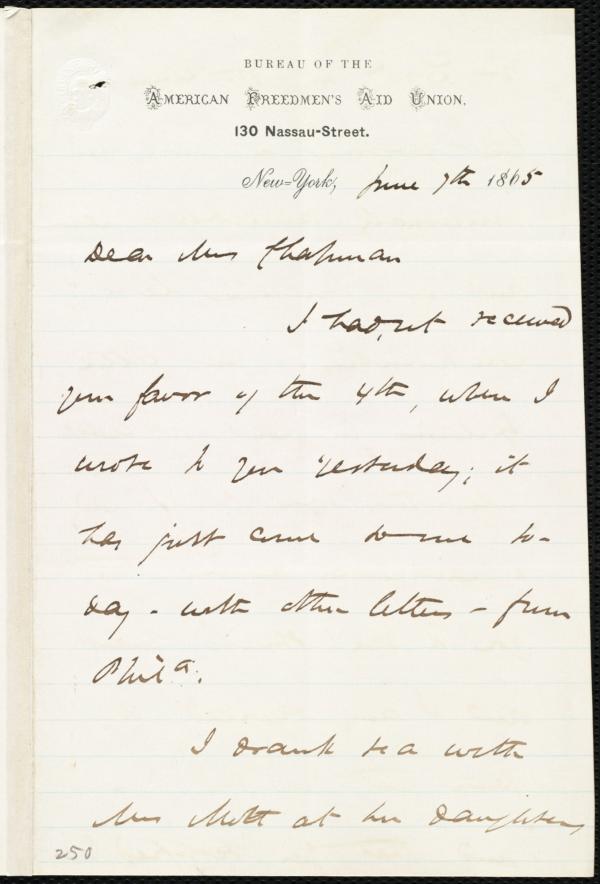 BUREAU OF THE
AMERICAN FREEDMEN'S AID UNION,
130 Nassau-Street.
New=York, June 7th 1865
Dear Mrs Chapman
I had not received
your favor of the 4th, when I
wrote to you yesterday; it
has just come to me to-
day - with other letters - from
Phila.
I drank tea with
Mrs Mott at her daughters
250